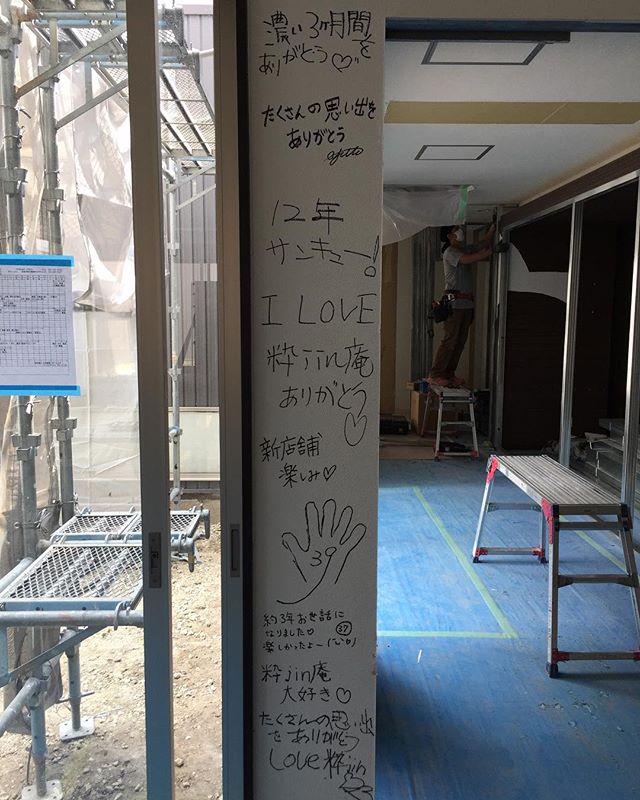 濃い3ヶ月間を
ありがとう♡
たくさんの思い出を
ありがとう
12年
サンキュー!
I LOVE
粋jin庵
ありがとう
♡
新店舗
楽しみ♡
39
約3年お世話に
なりました♡
楽しかったよー
37
粋jin庵
大好き♡
たくさんの思い出
をありがとう
Love 粋jin